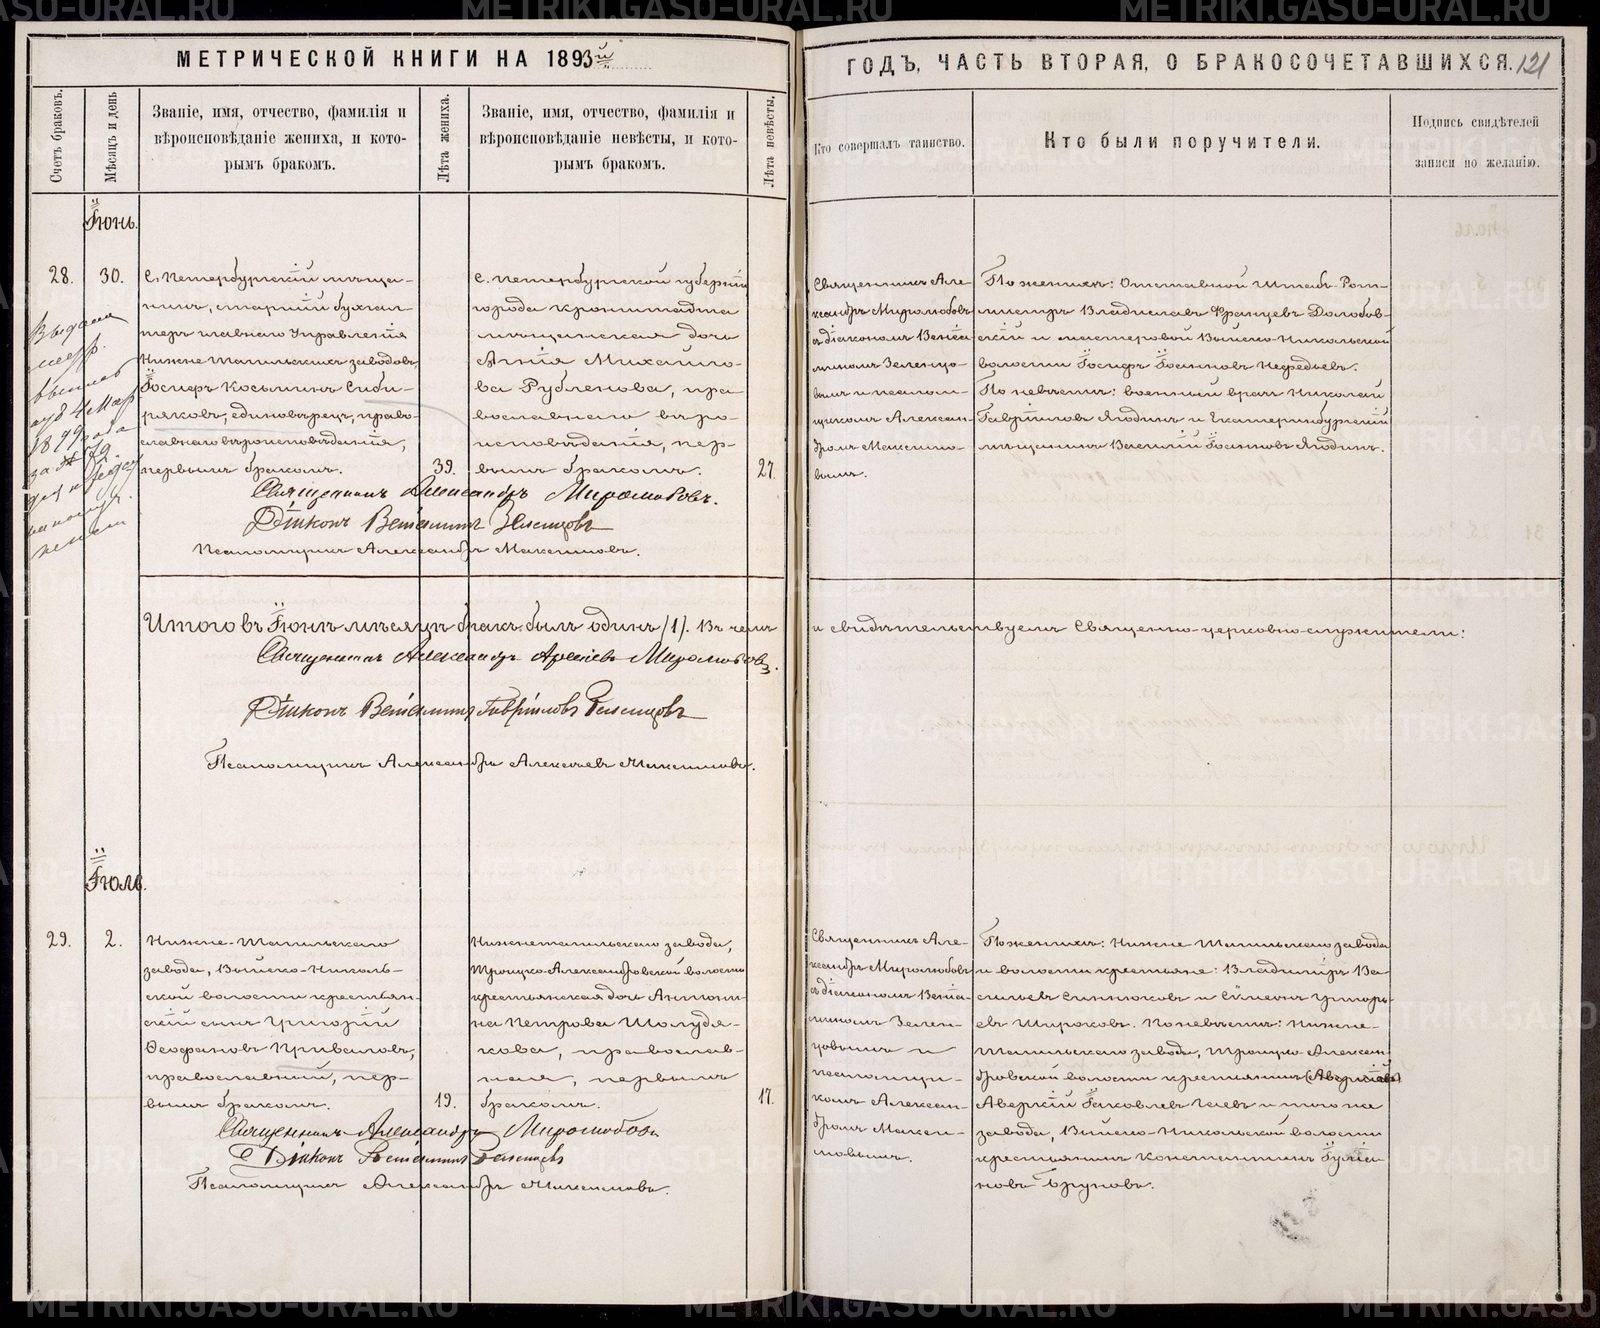 МЕТРИЧЕСКОЙ КНИГИ НА 1893й
ГОДЪ, ЧАСТЬ ВТОРАЯ, О БРАКОСОЧЕТАВШИХСЯ. 121
Счетъ браковъ.
Мѣсяцъ и день
Званіе, имя, отчество, фамилія и
вѣроисповѣданіе жениха, и кото-
рымъ бракомъ.
Лѣта жениха.
Званіе, имя, отчество, фамилія и
вѣроисповѣданіе невѣсты, и кото-
рымъ бракомъ.
Лѣта невѣсты.
Кто совершалъ таинство.
Кто были поручители.
Подпись свидѣтелей
записи по желанію.
Іюнь.
28.
30.
С. Петербургскій мѣща-
нинъ, старшій бухгал-
теръ главнаго Управленія
Нижне Тагильскихъ заводовъ
Іосифъ Косьминъ Сиби-
ряковъ, единовѣрецъ, право-
славнаго вѣроисповѣданія,
первымъ бракомъ.
39.
С. Петербургской губерніи
города Кронштадта
мѣщанская дочь
Анна Михайло-
ва Рубленова, пра
вославнаго вѣро-
исповѣданія, пер-
вымъ бракомъ.
27.
Священникъ Але-
ксандръ Миролюбовъ
съ діакономъ Веніа-
миномъ Зеленцо-
вымъ и псалом-
щикомъ Алексан-
дромъ Максимо-
вымъ.
По женихѣ: Отставной Штабъ-Рот-
мистръ Владиславъ Францевъ Долобов-
скій и мастеровой Выйско-Никольской
волости Іосифъ Іоанновъ Нефедьевъ.
По невѣстѣ: военный врачъ Николай
Гавріиловъ Ягодинъ и Екатеринбургскій
мѣщанинъ Василій Іоанновъ Ягодинъ.
Выдана
4 Мар
1899 года
за №
Священникъ Александръ Миролюбовъ.
Діаконъ Веніаминъ Зеленцовъ
Псаломщикъ Александръ Максимовъ.
Итого въ Іюнѣ мѣсяцѣ бракъ былъ одинъ /1/. Въ чемъ
и свидѣтельствуемъ Священно-церковно-служители:
Священникъ Александръ Арсеніевъ Миролюбовъ.
Діаконъ Веніаминъ Гавріиловъ Зеленцовъ
Псаломщикъ Александръ Алексѣевъ Максимовъ.
Іюль.
29.
2.
Нижне-Тагильскаго
завода, Выйско-Николь-
ской волости крестьян-
скій сынъ Григорій
Ѳеофановъ Приваловъ,
православный, пер-
вымъ бракомъ.
19.
Нижнетагильскаго завода,
Троицко-Александровской волости
крестьянская дочь Антони-
на Петрова Шолудя-
кова, православ-
ная, первымъ
бракомъ.
17.
Священникъ Але-
ксандръ Миролюбовъ
съ діакономъ Веніа-
миномъ Зелен-
цовымъ и
псаломщи-
комъ Алексан-
дромъ Макси-
мовымъ.
По женихѣ: Нижне Тагильскаго завода
и волости крестьяне: Владиміръ Ва
сильевъ Синюковъ и Симеонъ Григорь-
евъ Широковъ. По невѣстѣ: Нижне-
Тагильскаго завода, Троицко Алексан-
дровской волости крестьянинъ
Аверкій Іаковлевъ Гаевъ и того же
завода, Выйско-Никольской волости
крестьянинъ Константинъ Іуліа-
новъ Бруновъ.
Священникъ Александръ Миролюбовъ
Діаконъ Веніаминъ Зеленцовъ
Псаломщикъ Александръ Максимовъ.
METRIKI.GASO-URAL.RU